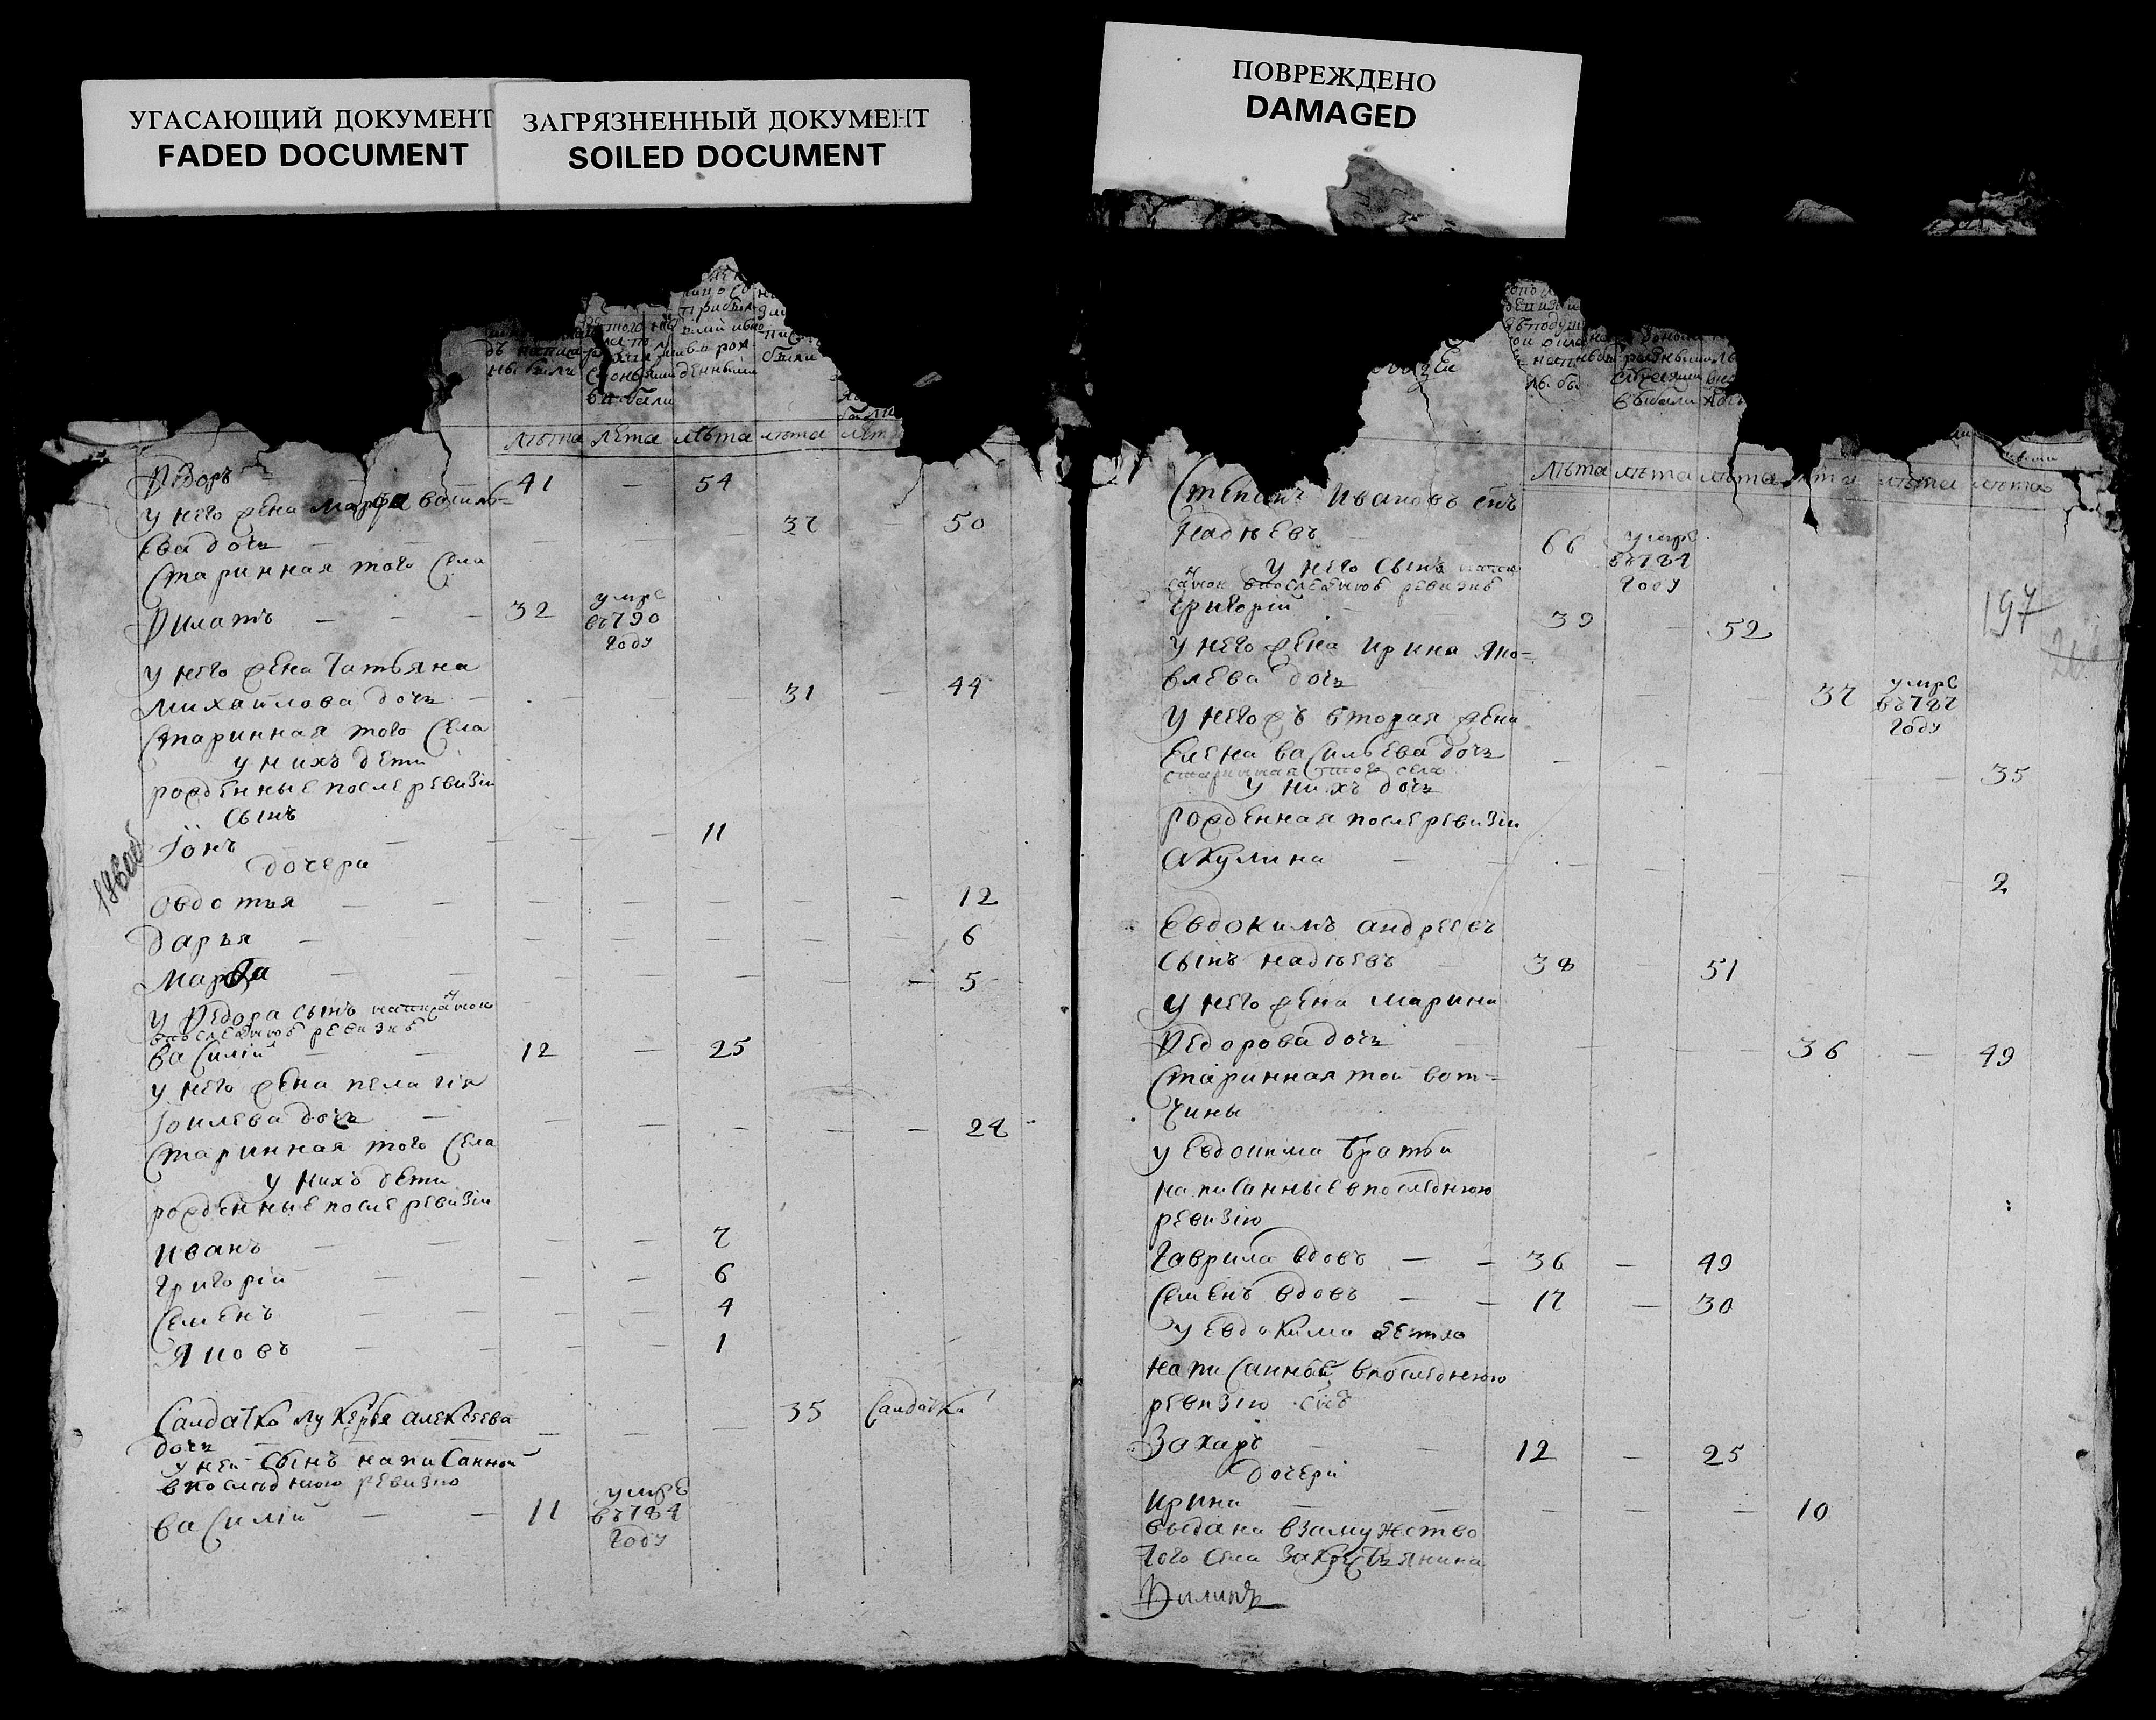 УГАСАЮЩИЙ ДОКУМЕНТ
FADED DOCUMENT
ЗАГРЯЗНЕННЫЙ ДОКУМЕНТ
SOILED DOCUMENT
ПОВРЕЖДЕНО
DAMAGED
ны были
денными
были
выбыли
лѣта лѣта лѣта лѣта лѣт
Ѳедоръ — 41 — 54
у него жена марфа василь=
ева дочь — 37 — 50
Старинная того Села
Филатъ — 32 умре въ 790 году
у него жена Татьяна
михайлова дочь — 31 — 44
Старинная того Села
у нихъ дети
рожденные после ревизіи
Сынъ
Іонъ — 11
дочери
овдотья — 12
дарья — 6
марфа — 5
у Ѳедора сынъ написанной
въпоследнюю ревизию
василій — 12 — 25
у него жена пелагія
Іовлева дочь — 24
Старинная того Села
у нихъ дети
рожденные после ревизіи
иванъ — 7
григорій — 6
Семенъ — 4
Яковъ — 1
Салдатка лукерья алексеева 35 Салдатка
дочь
у ней сынъ написанной
впоследнюю ревизию
василій — 11 умре въ 784 году
196об
выбыли
лѣта лѣта лѣта лѣта лѣта лѣта
Степанъ Ивановъ снъ
Надѣевъ — 66 умре въ 784 году
у него сынъ напи
санои впоследнюю ревизию
григорій — 39 — 52
197
у него жена ирина яко=
влева дочь — 37 умре въ 787 году
у негожъ вторая жена
Елена васильева дочь — 35
старинная того села
у нихъ дочь
рожденная после ревизіи
акулина — 2
Евдокимъ андреевъ
сынъ надѣевъ — 38 — 51
у него жена марина
Ѳедорова дочь — 36 — 49
Старинная той вот=
чины
у Евдокима братьи
написанные впоследнюю
ревизію
гаврила вдовъ — 36 — 49
Семенъ вдовъ — 17 — 30
у Евдокима детя
написанные впоследнюю
ревизію снъ
Захаръ — 12 — 25
дочери
ирина — 10
выдана взамужство
того села за крестьянина
Филипа